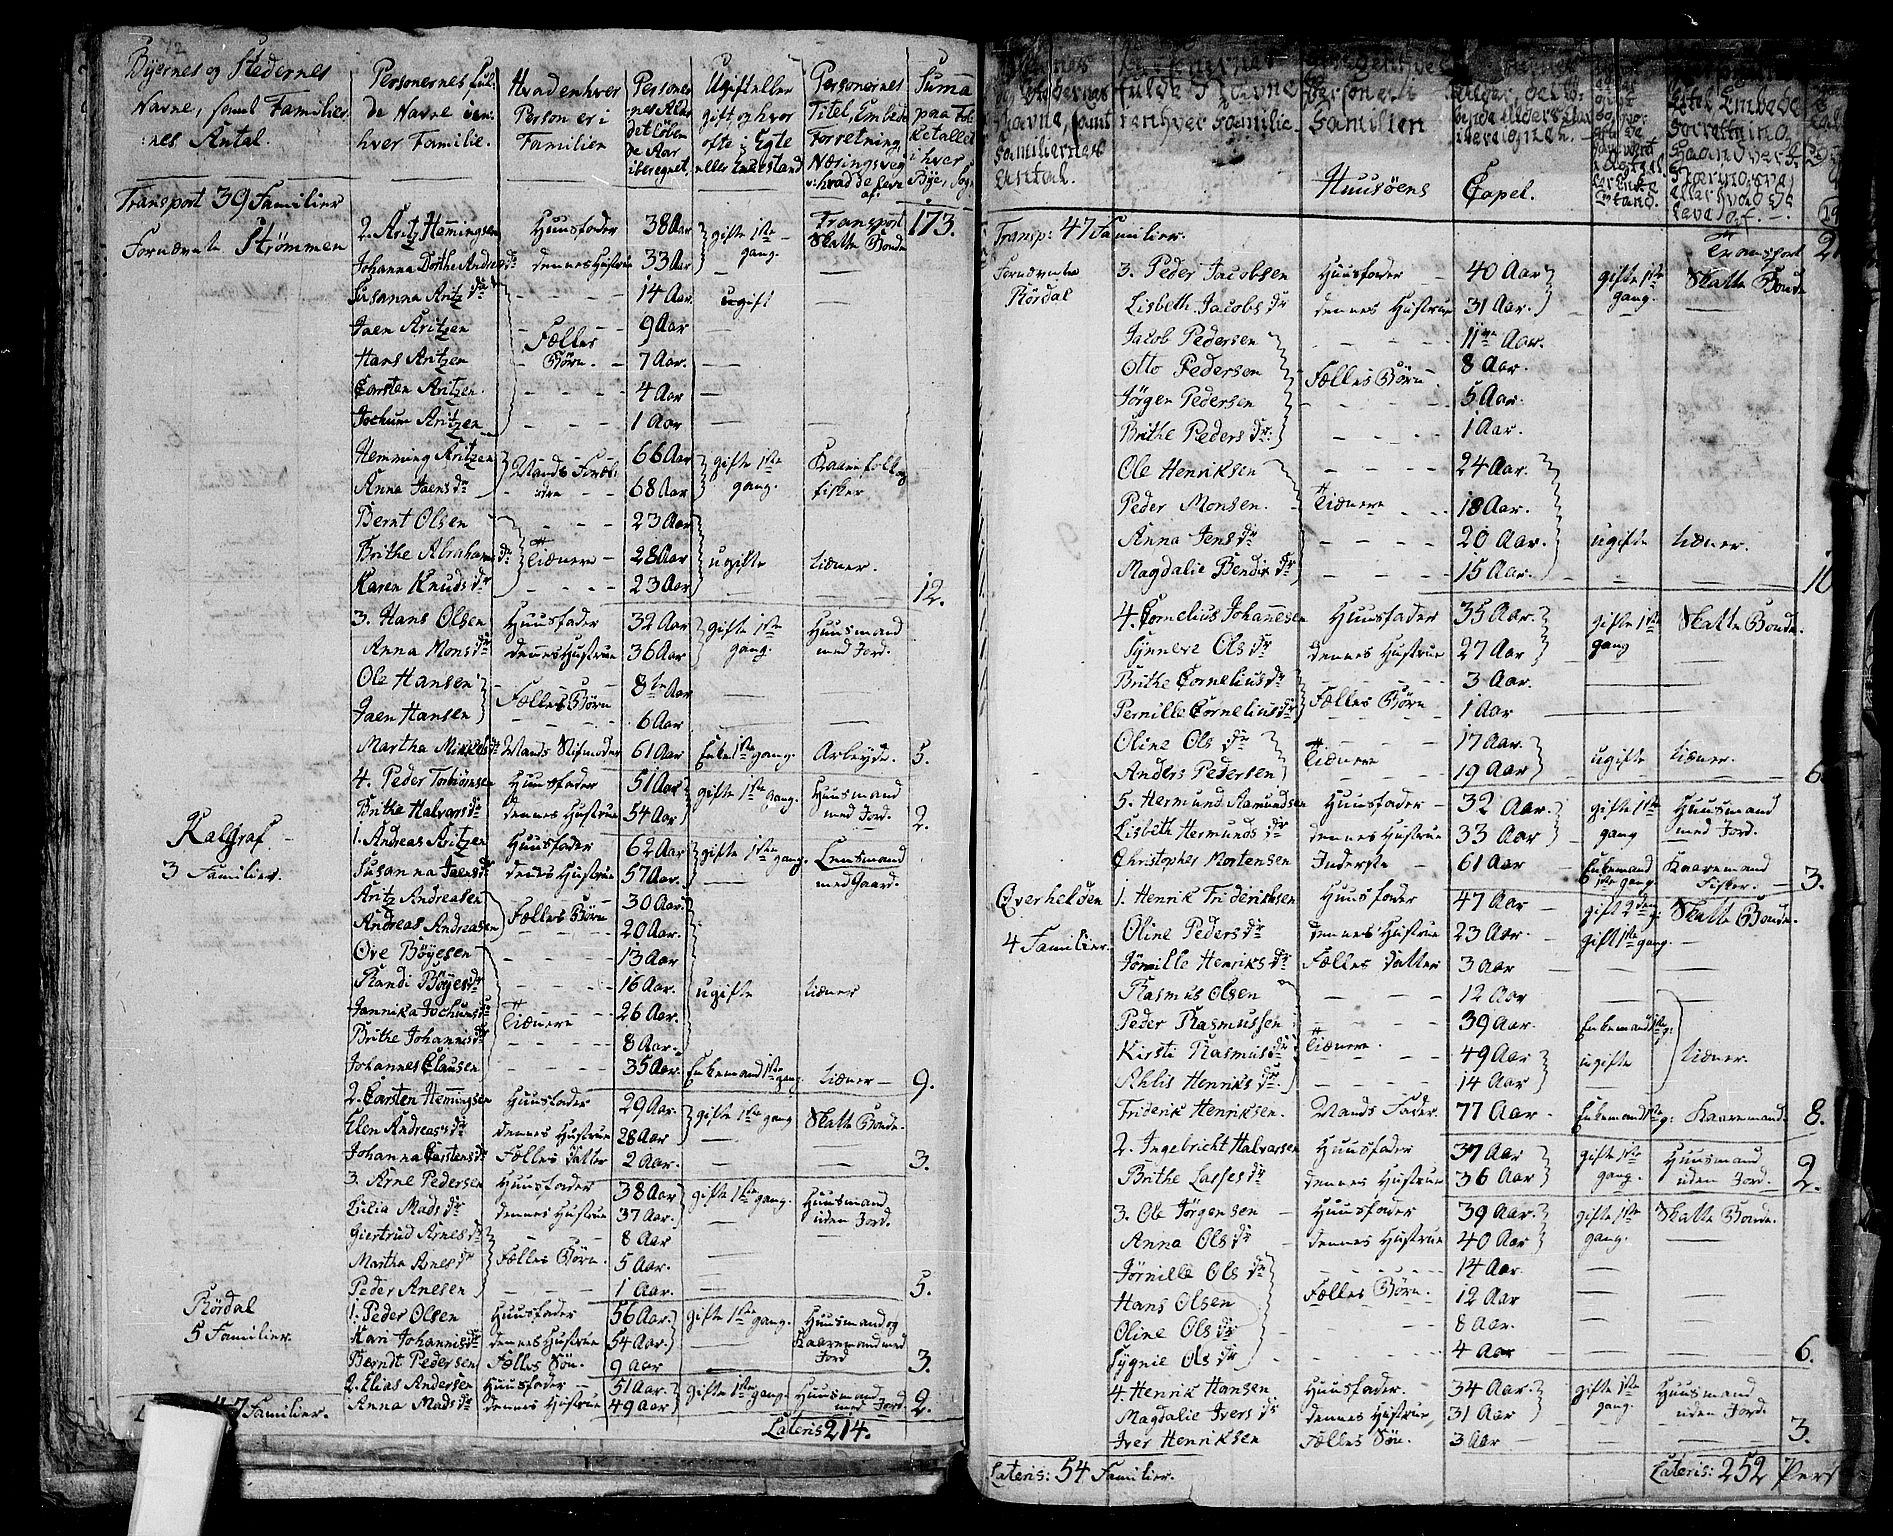 72
Byernes og Stedernes Navne, samt Familiernes Antal.
Personernes fulde Navne i enhver Familie.
Hvad enhver Person er i Familien
Personernes Alder det løbende Aar iberegnet
Ugift eller gift, og hvor ofte i Egte eller Enkestand
Personernes Titel, Embede Forretning, Næringsvey, hvad de leve af.
Suma paa Folketallet i hver Bye, Sogn
Transport 39 Familier Transport 173.
Fornævnte Strømmen 2. Aritz Hemingsen Huusfader 38 Aar gifte 1ste gang. Skatte Bonde
Johanna Dorthe Andreasdr dennes Hustrue 33 Aar
Susanna Aritzdr 14 Aar ugift
Jaen Aritzen Fælles Børn 9 Aar
Hans Aritzen 7 Aar.
Carsten Aritzen. 4 Aar
Jochum Aritzen 1 Aar
Hemming Aritzen Mands Forældre 66 Aar gifte 1ste gang. Kaarefolk og fisker.
Anna Jaensdr 68 Aar
Bernt Olsen 23 Aar
Brithe Abrahamsdr Tiænere 28 Aar ugifte tiæner.
Karen Knudsdr 23 Aar 12.
3. Hans Olsen Huusfader 32 Aar gifte 1ste gang. Huusmand med Jord.
Anna Monsdr dennes Hustrue 36 Aar
Ole Hansen Fælles Børn 8te Aar
Jaen Hansen 6 Aar
Martha Mikkelsdr Mands Stifmoder 61 Aar Enke 1ste gang. Arbeyde. 5.
4. Peder Torbiørnsen Huusfader 51 Aar gifte 1ste gang. Huusmand med Jord.
Brithe Halvorsdr dennes Hustrue 54 Aar 2.
Kalgraf. 1. Andreas Aritzen Huusfader 62 Aar gifte 1ste gang. Lensmand med Gaard.
3 Familier. Susanna Jaensdr dennes Hustrue 57 Aar.
Aritz Andreasen Fælles Børn 30 Aar
Andreas Andreasen 20 Aar.
Ove Böyesen 13 Aar
Randi Böyesdr 16 Aar. ugifte tiæner
Jannika Jochumsdr Tiænere 26 Aar.
Brithe Johannisdr 8 Aar.
Johannes Clausen 35 Aar. Enkemand 1ste gang. tiæner 9.
2. Carsten Hemingsen Huusfader 29 Aar. gifte 1ste gang Skatte Bonde.
Elen Andreasdr dennes Hustrue 28 Aar
Johanna Carstensdr Fælles Datter 2 Aar. 3.
3. Arne Pedersen Huusfader 38 Aar gifte 1ste gang. Huusmand uden Jord.
Lilia Madsdr dennes Hustrue 37 Aar.
Giertrud Arnesdr 8 Aar
Martha Arnesdr Fælles Børn. 5 Aar.
Peder Arnesen 1 Aar. 5.
Rördal 1. Peder Olsen Huusfader 56 Aar gifte 1ste gang. Huusmand og Kaaremand med Jord
5 Familier. Kari Johannisdr dennes Hustrue 54 Aar.
Berndt Pedersen Fælles Søn. 9 Aar 3.
2. Elias Andersen Huusfader 51 Aar. gifte 1ste gang. Huusmand med Jord.
Anna Madsdr dennes Hustrue 49 Aar 2.
47 Familier. Lateris 214.
fulde Navne i enhver Familie. Familien
Familiernes Antal.
Huusöens Capel.
Transp: 47 Familier. Transport
Fornævnte Rördal 3. Peder Jacobsen Huusfader 40 Aar gifte 1ste gang. Skatte Bonde
Lisbeth Jacobsdr dennes Hustrue 31 Aar.
Jacob Pedersen 11ve Aar.
Otto Pedersen Fælles Børn. 8 Aar.
Jörgen Pedersen 5 Aar.
Brithe Pedersdr: 1 Aar.
Ole Henriksen 24 Aar.
Peder Monsen. Tiænere 18 Aar.
Anna Jensdr 20 Aar. ugifte tiæner.
Magdalie Bendixdr 15 Aar. 10
4. Cornelius Johannesen Huusfader 35 Aar. gifte 1ste gang Skatte Bonde.
Synneve Olsdr dennes Hustrue 27 Aar
Brithe Corneliusdr Fælles Børn 3 Aar.
Pernille Corneliusdr 1 Aar
Oline Olsdr Tiænere 17 Aar. ugifte tiæner.
Anders Pedersen 19 Aar 6.
5. Hermund Aamundsen Huusfader 32 Aar. gifte 1ste gang Huusmand med Jord.
Lisbeth Hermundsdr dennes Hustrue 33 Aar
Christopher Mortensen Inderste 61 Aar Enkemand 1ste gang. Kaaremand Fisker. 3.
Overhelden 1. Henrik Friderichsen Huusfader 47 Aar gift 2den g: Skatte Bonde.
4 Familier. Oline Pedersdr dennes Hustrue 23 Aar. gift 1ste gang.
Jörnille Henriksdr Fælles Datter 3 Aar
Rasmus Olsen 12 Aar
Peder Rasmussen Tiænere. 39 Aar. Enkemand 1ste g:
Kirsti Rasmusdr 49 Aar ugifte tiæner.
Ahlis Henriksdr. 14 Aar
Friderik Henriksen. Mands Fader. 77 Aar. Enkemand 1ste g: Kaaremand. 8.
2. Ingebricht Halvorsen Huusfader 37 Aar gifte 1ste gang. Huusmand uden Jord.
Brithe Lassesdr dennes Hustrue 36 Aar 2.
3. Ole Jörgensen Huusfader 39 Aar. gifte 1ste gang. Skatte Bonde.
Anna Olsdr dennes Hustrue 40 Aar
Jörnille Olsdr 14 Aar.
Hans Olsen Fælles Børn. 12 Aar
Oline Olsdr 8 Aar.
Sygnie Olsdr 4 Aar 6.
4. Henrik Hansen Huusfader. 34 Aar. gifte 1ste gang. Huusmand uden Jord.
Magdalie Iversdr dennes Hustrue 31 Aar
Iver Henriksen Fælles Søn. 3 Aar 3.
Lateris: 54 Familier. Lateris: 252 Pers